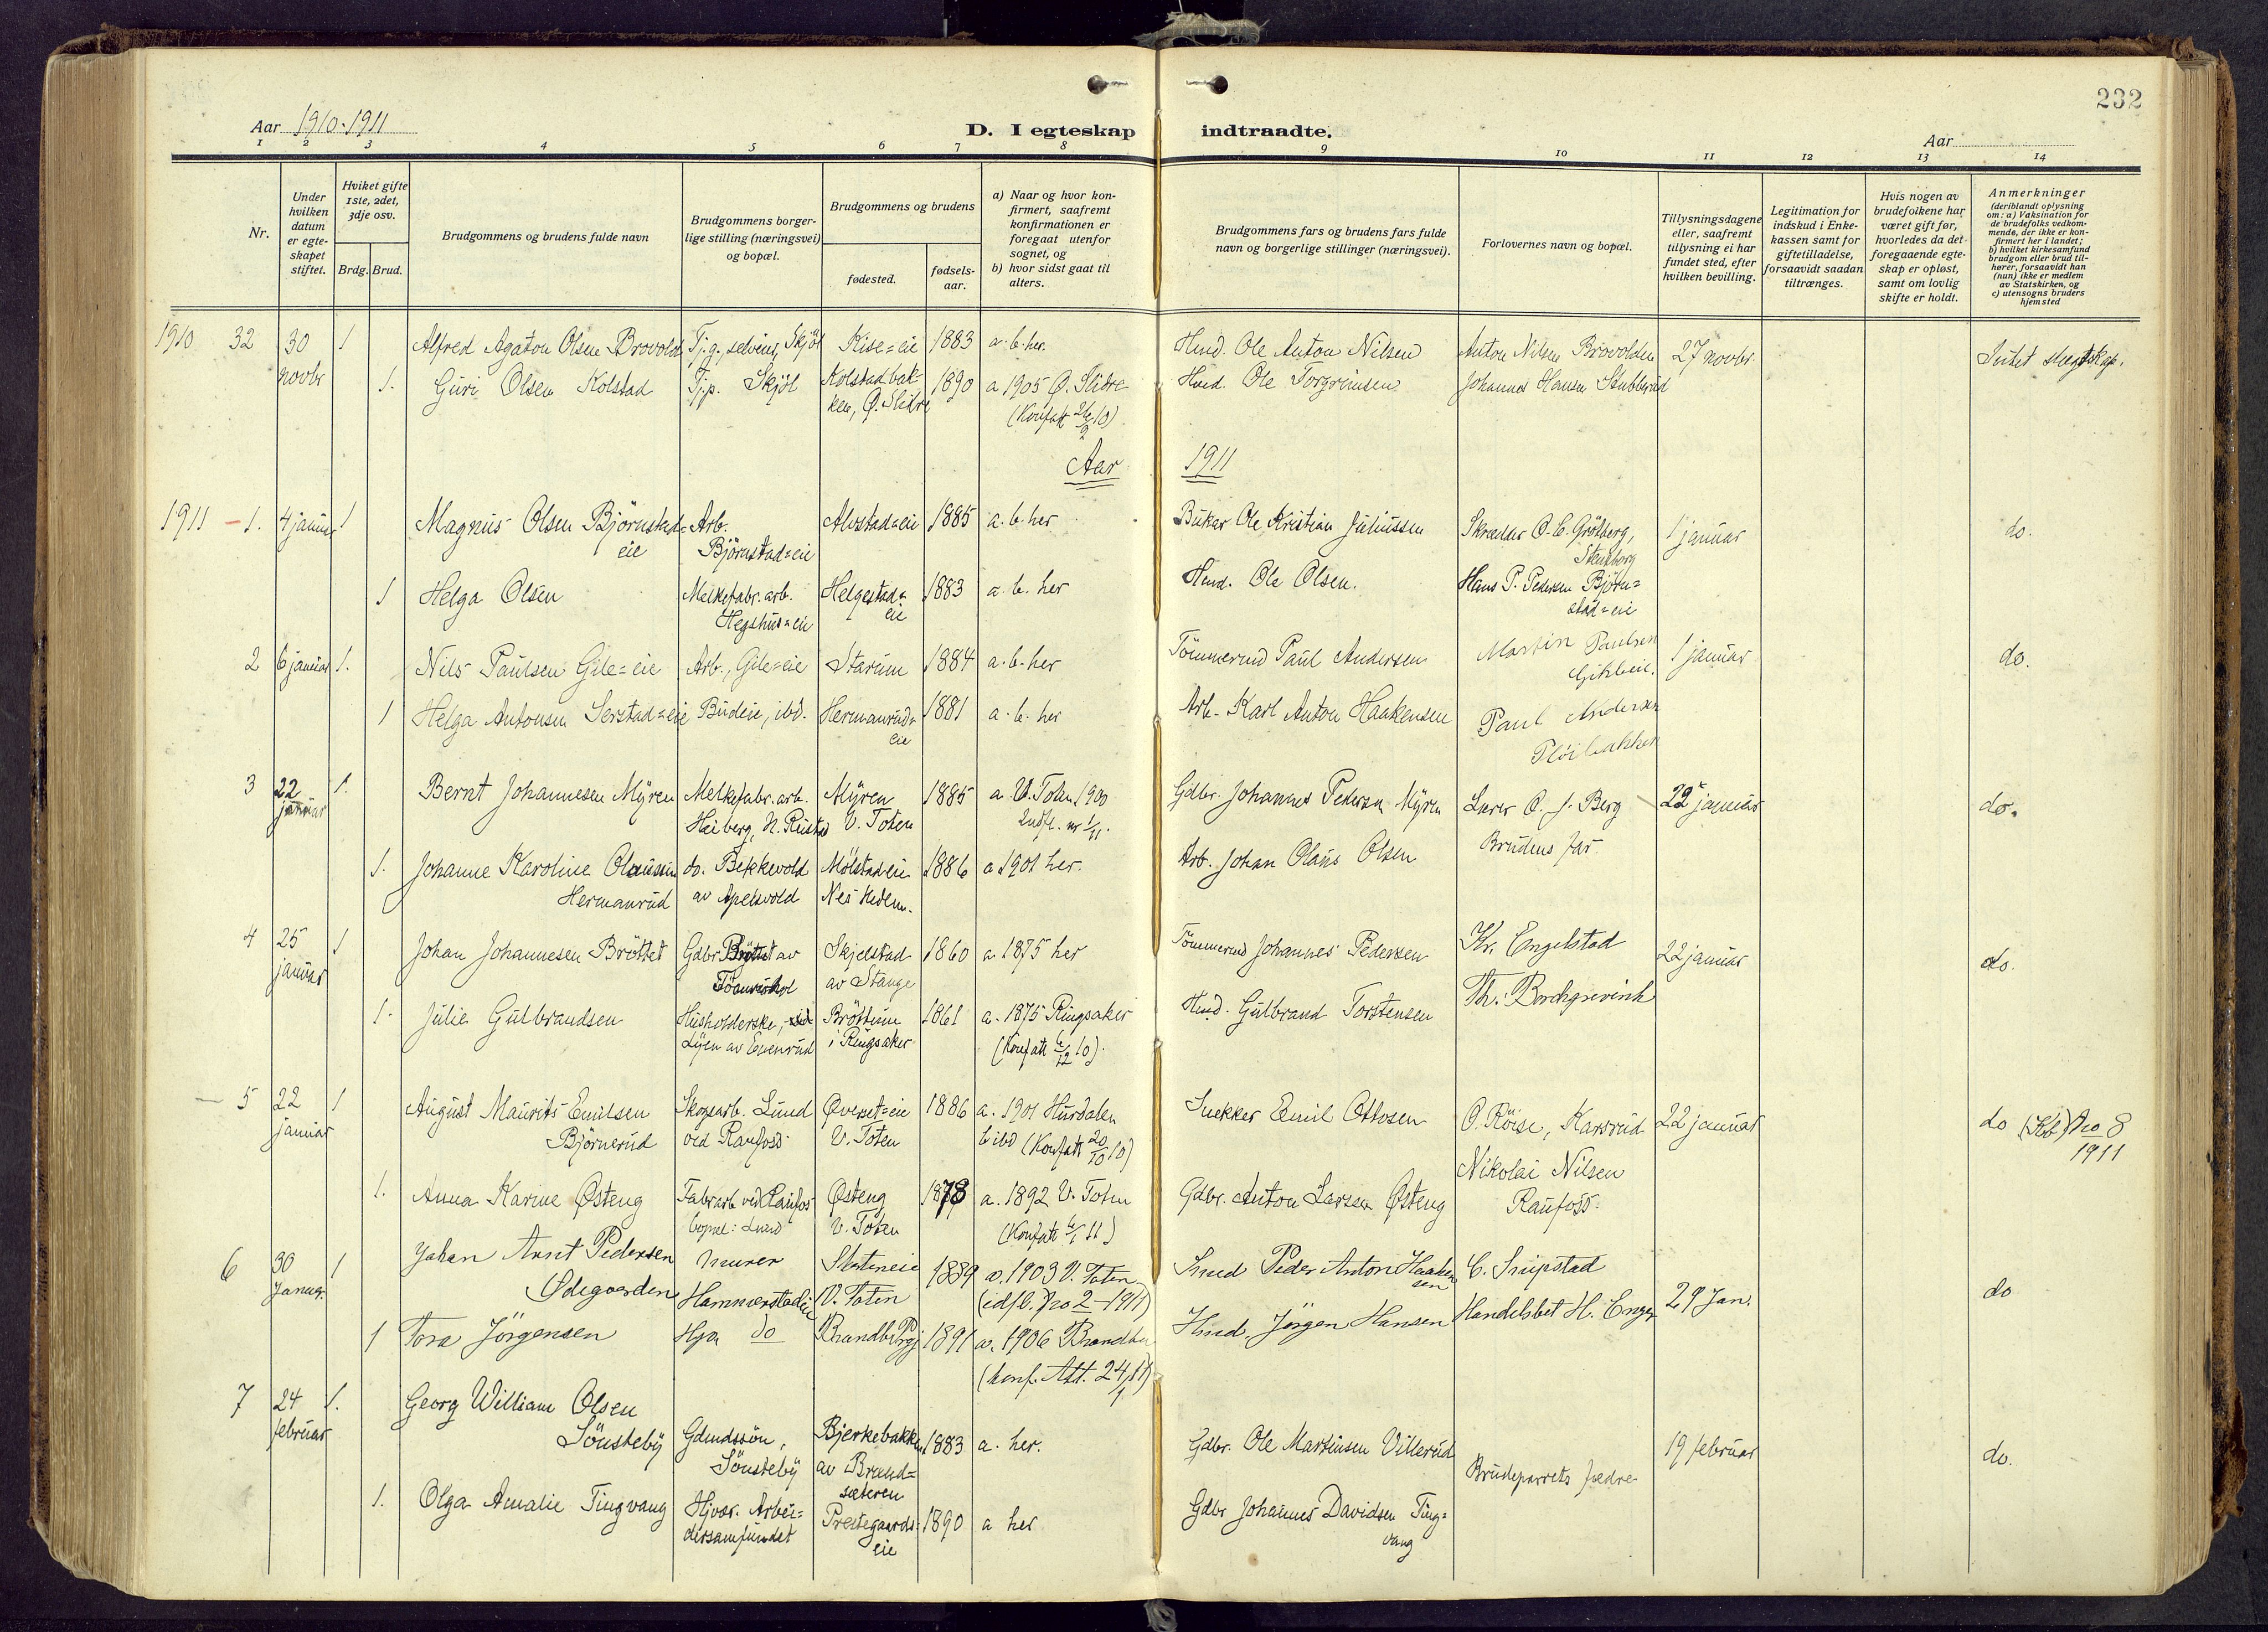 232
Aar 1910-1911
D. I egteskap indtraadte.
Aar
1 2 3 4 5 6 7 8 9 10 11 12 13 14
Nr.
Under hvilken datum er egte-skapet stiftet.
Hviket gifte 1ste, 2det, 3dje osv.
Brdg. Brud.
Brudgommens og brudens fulde navn
Brudgommens borger-lige stilling (næringsvei) og bopæl.
Brudgommens og brudens
fødested.
fødsels-aar.
a) Naar og hvor kon-firmert, saafremt konfirmationen er foregaat utenfor sognet, og
b) hvor sidst gaat til alters.
Brudgommens fars og brudens fars fulde navn og borgerlige stillinger (næringsvei).
Forlovernes navn og bopæl.
Tillysningsdagene eller, saafremt tillysning ei har fundet sted, efter hvilken bevilling.
Legitimation for indskud i Enke-kassen samt for giftetilladelse, forsaavidt saadan tiltrænges.
Hvis nogen av brudefolkene har været gift før, hvorledes da det foregaaende egte-skap er opløst, samt om lovlig skifte er holdt.
Anmerkninger
(deriblandt oplysning om: a) Vaksination for de brudefolks vedkom-mende, der ikke er kon-firmert her i landet; b) hvilket kirkesamfund brudgom eller brud til-hører, forsaavidt han (hun) ikke er medlem av Statskirken, og c) utensogns bruders hjemsted
1910 32 30 novbr 1 Alfred Agaton Olsen Brovold Tj.g., selveier, Skjöl Kise=eie 1883 a. b. her. Husd. Ole Anton Nilsen Anton Nilsen Brovolden 27 novbr. Intet slegtskap.
1. Guri Olsen Kolstad Tj.p. Skjöl Kolstadbak-ken, Ø. Slidre 1890 a 1905 Ø. Slidre (Konfatt 26/9 10) Husd. Ole Torgrimsen Johannes Hansen Stubberud
Aar 1911
1911 1. 4 januar 1 Magnus Olsen Björnstad=eie Arb. Björnstad=eie Alvstad=eie 1885 a. b. her Ole Kristian Juliussen Skrædder O. C. Grötberg, Stenberg 1 januar do.
1 Helga Olsen Melkefabr. arb. Hegshus=eie Helgestad=eie 1883 a. b. her Husd. Ole Olsen. Hans P. Pedersen Björn=stad=eie
2 6 januar 1. Nils Paulsen Gile=eie Arb., Gile=eie Starum 1884 a. b. her Tömmermd Paul Andersen Martin Paulsen 1 januar do.
1 Helga Antonsen Serstad=eie Budeie, ibd. Hermanrud=eie 1881 a. b. her Arb. Karl Anton Haakensen Paul Andersen
3 22 januar 1. Bernt Johannesen Myren Melkefabr. arb. Heiberg, N. Rustad Myren V. Toten 1885 a. V. Toten 1900 Gdbr. Johannes Pedersen Myren Lærer O. J. Berg 22 januar do.
1. Johanne Karoline Olaussen Hermanrud do. Bekkevold av Apelsvold Mölstadeie Nes Hedem. 1886 a 1901 her. Arb. Johan Olaus Olsen Brudens far.
4 25 januar 1 Johan Johannesen Bröttet Gdbr Bröttet av Skjelstad av Stange 1860 a 1875 her Tömmermd Johannes Pedersen Kr. Engelstad 22 januar do.
1. Julie Gulbrandsen Husholderske, Lyen av Evenrud Bröttum i Ringsaker 1861 a. 1875 Ringsaker (Konfatt 6/12 10). Husd. Gulbrand Torstensen Th. Borchgrevink
5 22 januar 1 August Maurits Emilsen Björnerud Skogsarb. Lund ved Raufoss Øverset=eie V. Toten 1886 a. 1901 Hurdalen b ibd (Konfatt 20/10 10) Snekker Emil Ottosen O. Röise, Karsrud 22 januar do No 8 1911
1. Anna Karine Østeng Fabrarb ved Raufos bopæl: Lund Østeng V. Toten 1878 a. 1892 V. Toten (Konfatt 6/1 11) Gdbr. Anton Larsen Østeng Nikolai Nilsen Raufoss.
6 30 Januar 1 Johan Arnt Pedersen Ødegaarden Murer Hammerstadeie V. Toten 1889 a. 1903 V. Toten (idfl. No 2-1911) Smed Peder Anton Haakensen C. Snipstad 29 Jan. do
1 Tora Jörgensen Hjm do Brandbu 1891 a. 1906 Brandbu (konf. Att. 24/1 11) Husd. Jörgen Hansen Handelsbet H. Enger
7 24 februar 1. Georg William Olsen Sönsteby Gdmdssön, Sönsteby Bjerkebakken av Brand=sæteren 1883 a. her. Gdbr. Ole Martinsen Villerud Brudeparrets fædre 19 februar do.
1. Olga Amalie Tingvang Hjvær. Arbei=dersamfundet Prestegaards=eie 1890 a her Gdbr Johannes Davidsen Ting=vang